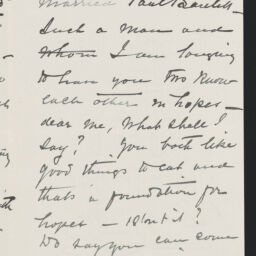 married Paul Bartlett –
Such a man and
whom I am longing
to have you two know
each other in hopes –
dear me, what shall I
say? You both like
good things to eat and
thats a foundation for
hopes – isn't it?
Do say you can come